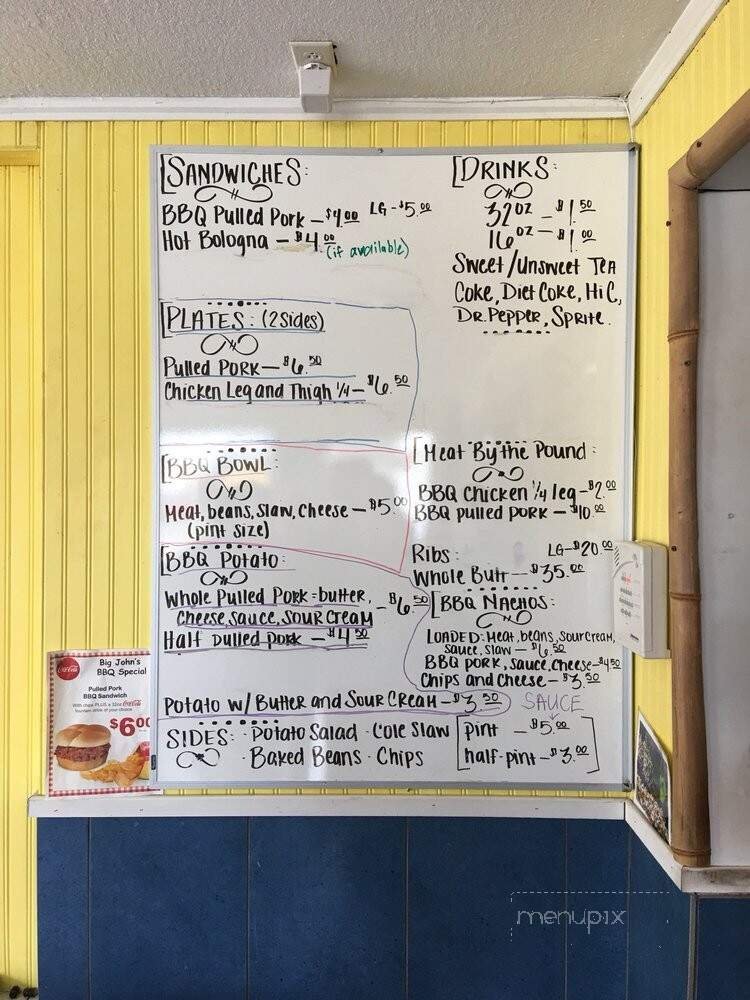 SANDWICHES:
BBQ Pulled Pork – $4.00 LG - $5.00
Hot Bologna – $4.00
(if available)
DRINKS:
32oz – $1.50
16oz – $1.00
Sweet/Unsweet Tea
Coke, Diet Coke, Hi C,
Dr. Pepper, Sprite.
PLATES: (2 Sides)
Pulled Pork – $6.50
Chicken Leg and Thigh 1/4 – $6.50
BBQ BOWL:
Meat, beans, slaw, cheese – $5.00
(pint size)
Meat By the Pound:
BBQ Chicken 1/4 leg – $2.00
BBQ pulled pork – $10.00
Ribs: LG - $20.00
Whole Butt – $35.00
BBQ Potato:
Whole Pulled Pork = butter,
cheese, sauce, sour cream – $6.50
Half pulled pork – $4.50
Potato w/ Butter and Sour Cream – $3.50
BBQ NACHOS:
LOADED: Meat, beans, sour cream,
sauce, slaw – $6.50
BBQ pork, sauce, cheese – $4.50
Chips and cheese – $3.50
SAUCE
pint – $5.00
half-pint – $3.00
SIDES: · Potato Salad · Cole Slaw
· Baked Beans · Chips
Coca-Cola
Big John's
BBQ Special
Pulled Pork
BBQ Sandwich
With chips PLUS a 32oz Coca-Cola
fountain drink of your choice
$6.00
menupix